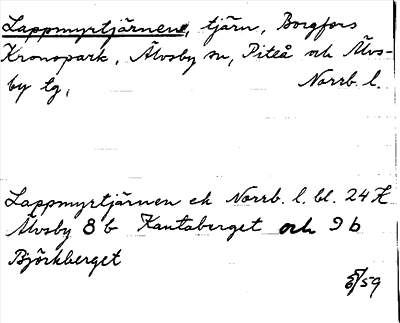 Lappmyrtjärnen, tjärn, Borgfors
Kronopark, Älvsby sn, Piteå och Älvs-
by tg, Norrb. l.
Lappmyrtjärnen ek Norrb. l. bl. 24 K
Älvsby 8 b Kantaberget och 9 b
Björkberget
/59